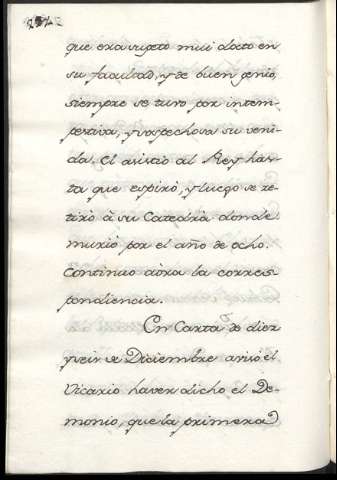 que era sugeto mui docto en
su facultad, y de buen genio,
siempre se tuvo por intem-
pestiva, y sospechosa su veni-
da. El asistio al Rey has-
ta que espiró, y luego se re-
tiró á su Catedra donde
murió por el año de ocho.
Continuo aora la corres-
pondiencia.
En Carta de diez
y seis de Diciembre avisó el
Vicario haver dicho el De-
monio, que la primera